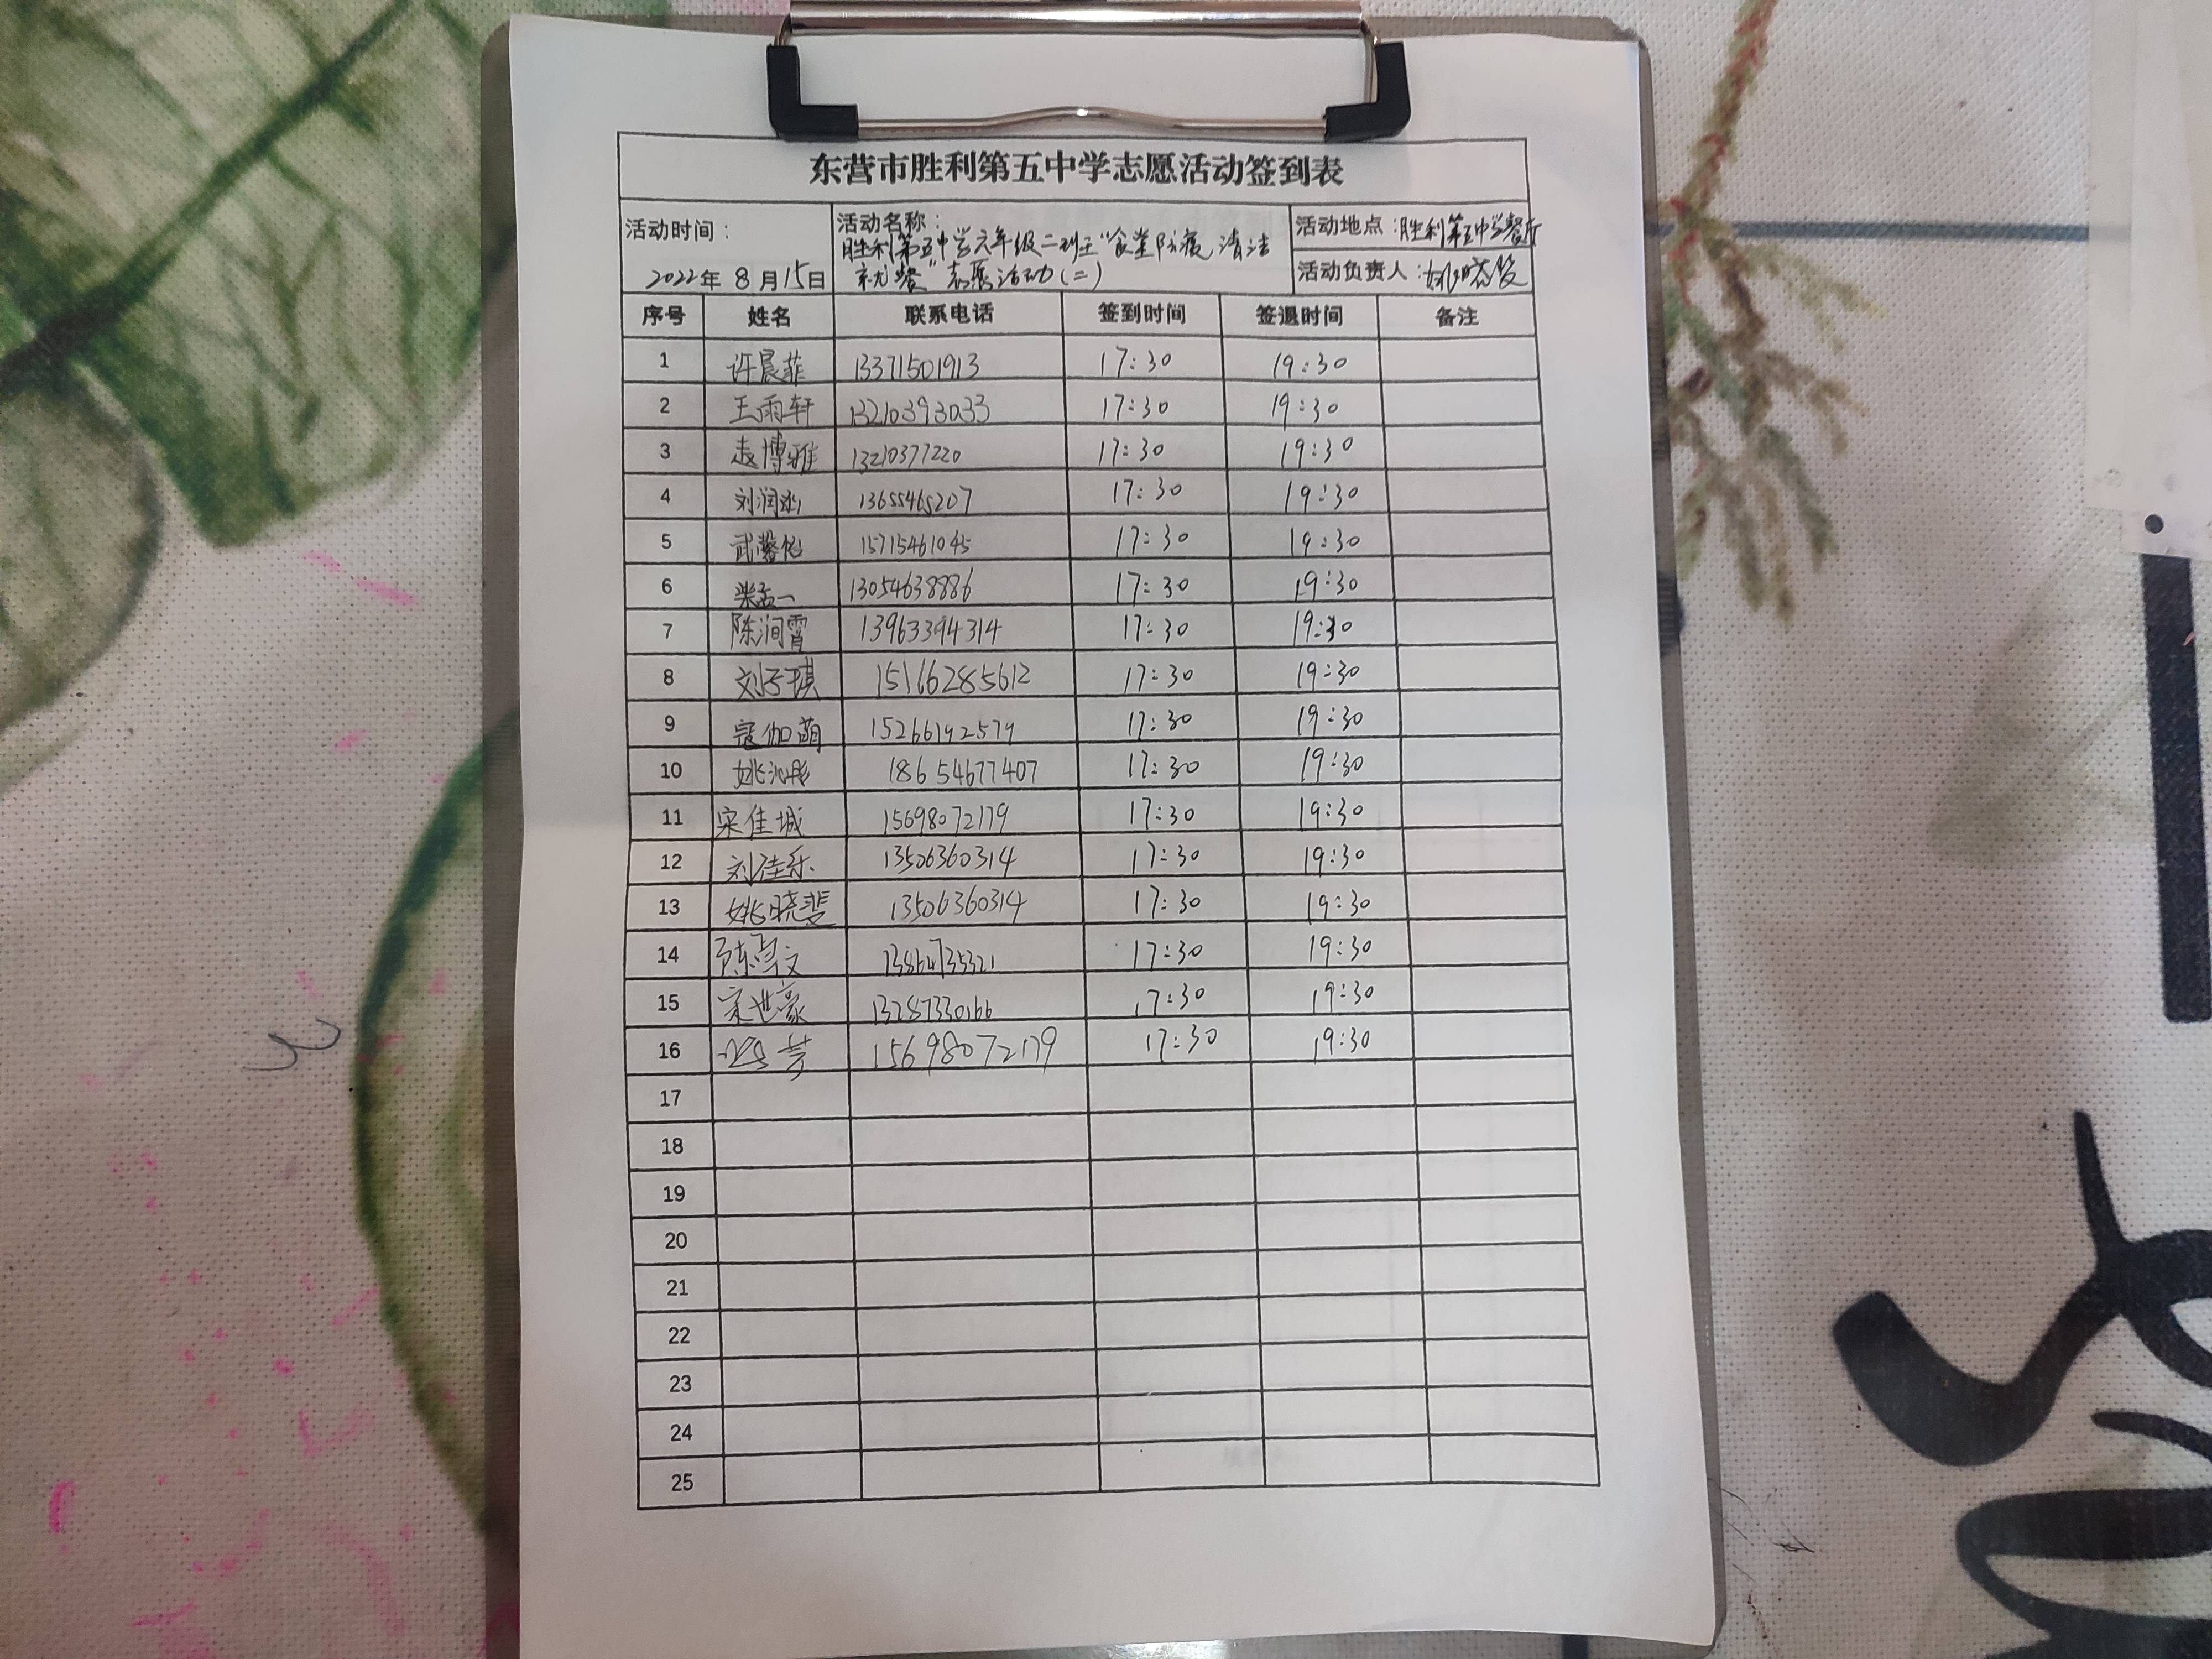 东营市胜利第五中学志愿活动签到表
活动时间：
2022年 8月15日
活动名称：
胜利第五中学六年级二班王"食堂防疫，清洁
就餐"志愿活动（二）
活动地点：胜利第五中学餐厅
活动负责人：姚晓
序号 姓名 联系电话 签到时间 签退时间 备注
1 许晨菲 13371501913 17:30 19:30
2 王雨轩 13210393033 17:30 19:30
3 赵博雅 13210377220 17:30 19:30
4 刘润 13655465207 17:30 19:30
5 武馨怡 15715461045 17:30 19:30
6 柴孟一 13054638886 17:30 19:30
7 陈润霄 13963394314 17:30 19:30
8 刘子琪 15166285612 17:30 19:30
9 寇伽萌 15266192579 17:30 19:30
10 姚沁彤 18654677407 17:30 19:30
11 宋佳城 15698072179 17:30 19:30
12 刘佳乐 13506360314 17:30 19:30
13 姚晓斐 13506360314 17:30 19:30
14 陈雪文 17:30 19:30
15 宋世豪 13287330166 17:30 19:30
16 15698072179 17:30 19:30
17
18
19
20
21
22
23
24
25